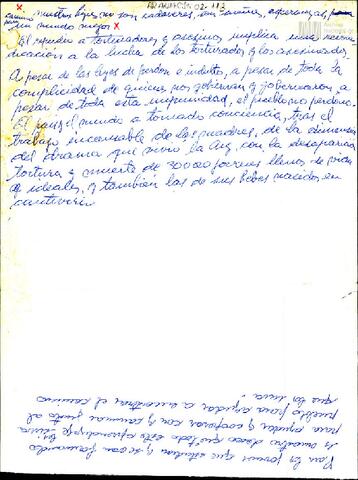 AR-AMPM CN 02-113
camino, nuestros hijos no son cadaveres, son semilla, esperanza de
mundo mejor
El repudio a torturadores y asesinos implica una reivin
dicación a la lucha de los torturados y los asesinados.
A pesar de las leyes de perdon e indulto, a pesar de toda la
complicidad de quienes nos gobiernan y gobernaron, a
pesar de toda esta impunidad, el pueblo no perdona.
El pais y el mundo a tomado conciencia, tras el
trabajo incansable de las madres, de la
del drama que vivió la Arg. con la desaparición
tortura y muerte de 30.000 jovenes llenos de vida
e ideales, y también las de sus bebes nacidos en
cautiverio
Y son los jovenes que estudian y se van formando
es nuestro deseo que todo este aprendizaje sirva
para ayudar y cooperar con y caminar junto al
pueblo para ayudar a encontrar el camino
que los una.